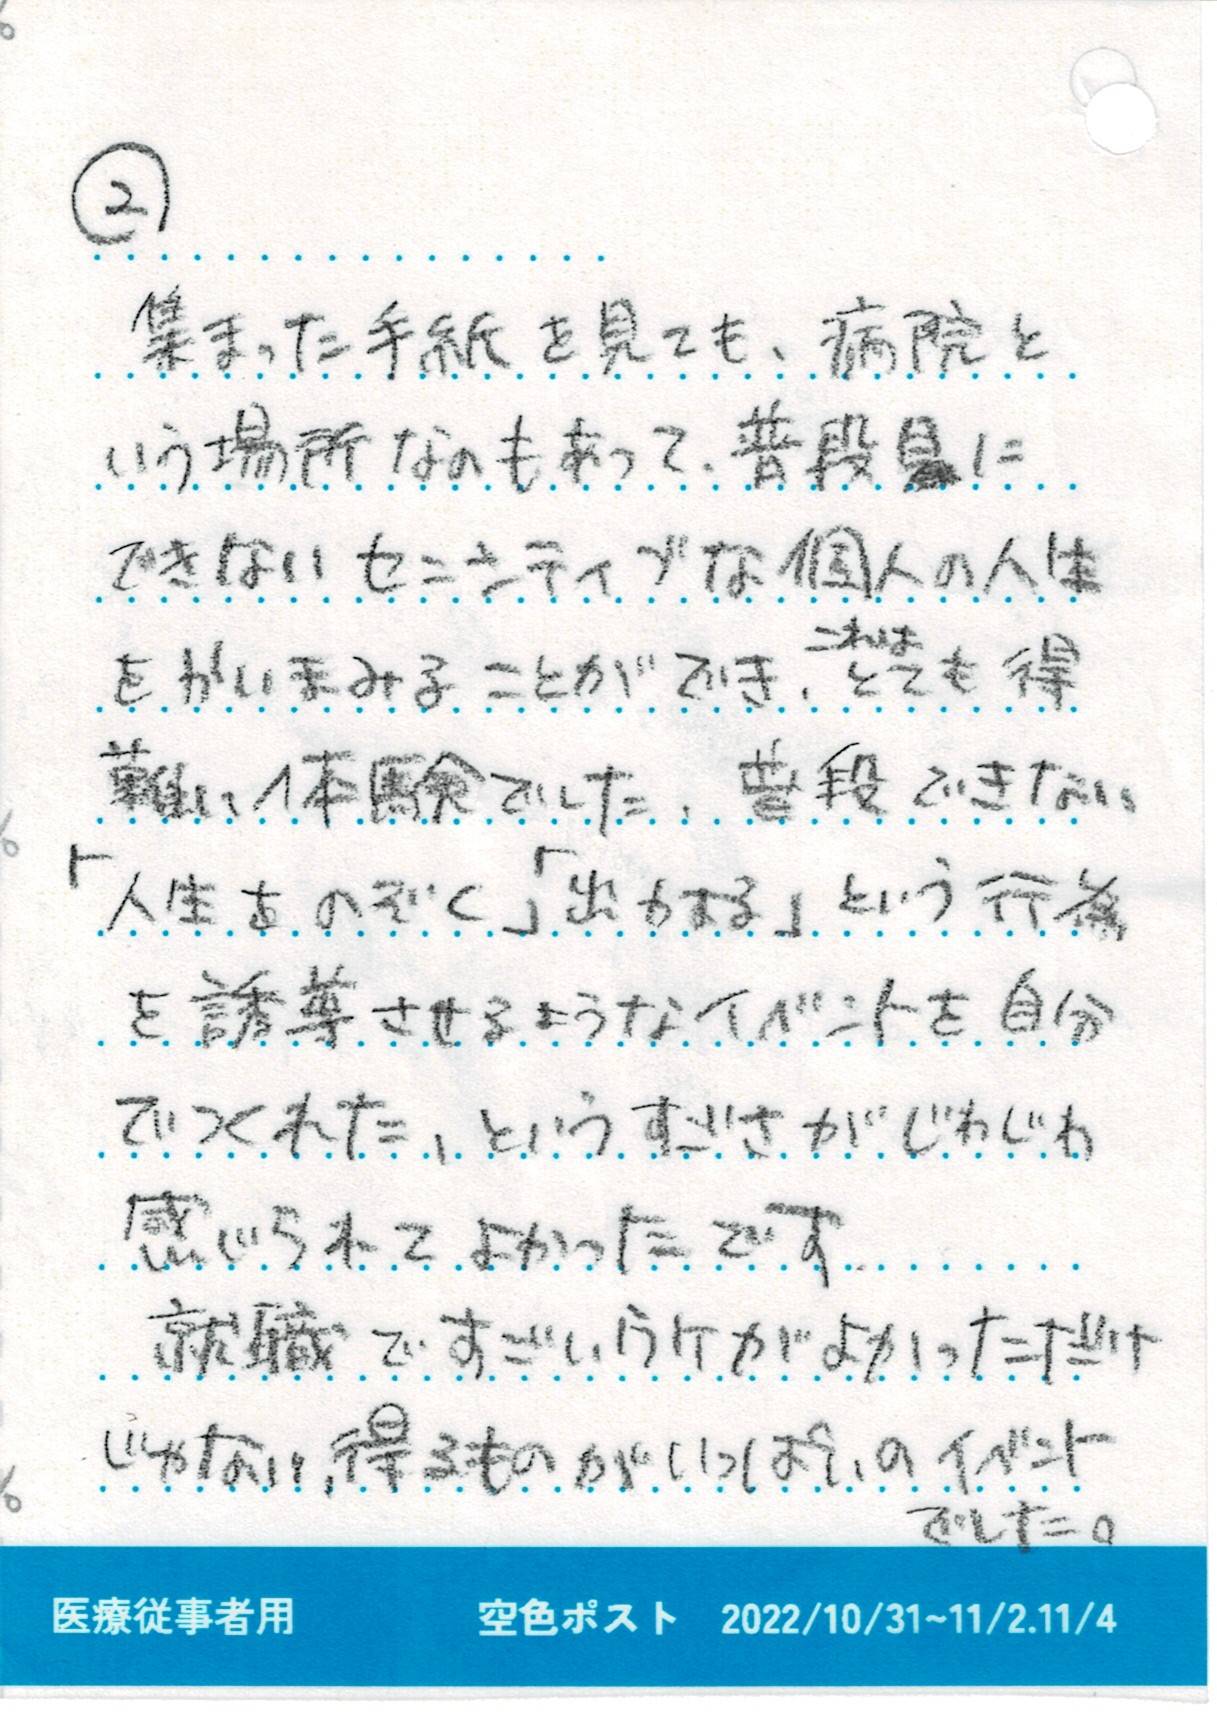 ②
集まった手紙を見ても、病院と
いう場所なのもあって、普段に
できないセンシティブな個人の人生
をかいまみることができ、これはとても得
難い体験でした、普段できない
「人生をのぞく」「出力する」という行為
を誘導させるようなイベントを自分
でつくれた、というすごさがじわじわ
感じられてよかったです
就職ですごいウケがよかっただけ
じゃない、得るものがいっぱいのイベント
でした。
医療従事者用 空色ポスト 2022/10/31~11/2.11/4